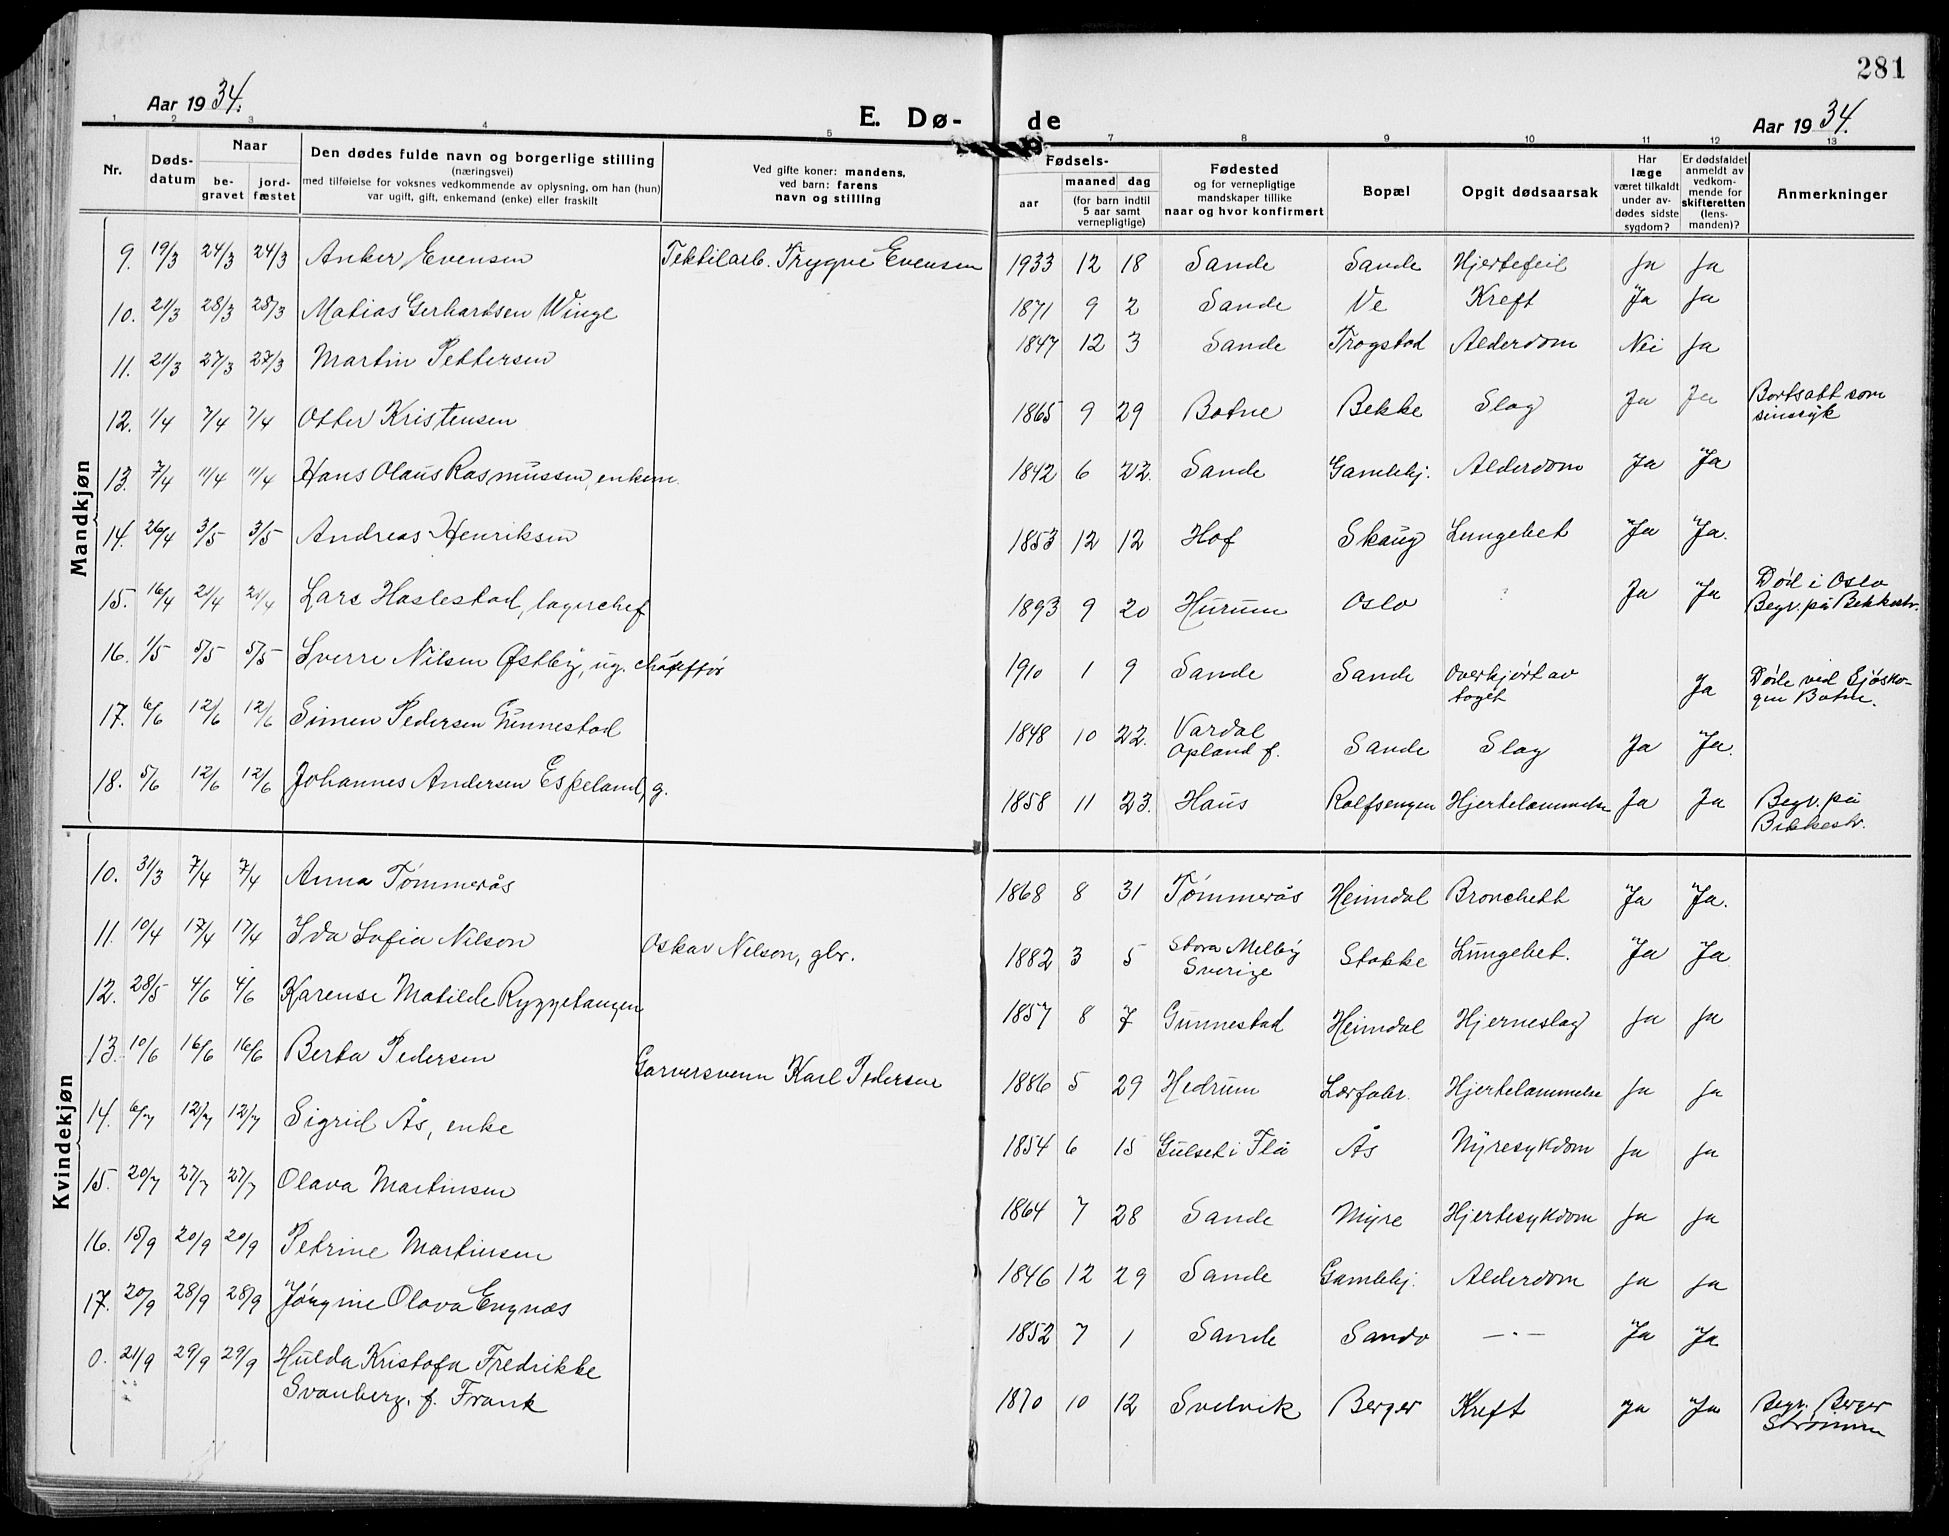 281
Aar 1934.
E. Dø- de
Aar 1934.
1 2 3 4 5 7 8 9 10 11 12 13
Nr. Døds-datum Naar begravet jordfæstet Den dødes fulde navn og borgerlige stilling (næringsvei) med tilføielse for voksnes vedkommende av oplysning, om han (hun) var ugift, gift, enkemand (enke) eller fraskilt Ved gifte koner: mandens, ved barn: farens navn og stilling Fødsels- aar maaned dag (for barn indtil 5 aar samt vernepligtige) Fødested og for vernepligtige mandskaper tillike naar og hvor konfirmert Bopæl Opgit dødsaarsak Har læge været tilkaldt under avdødes sidste sygdom? Er dødsfaldet anmeldt av vedkommende for skifteretten (lensmanden)? Anmerkninger
Mandkjøn
9. 19/3 24/3 24/3 Anker Evensen Tekstilarb. Trygve Evensen 1933 12 18 Sande Sande Hjertefeil Ja Ja
10. 21/3 28/3 28/3 Matias Gerhardsen Winge 1871 9 2 Sande Ve Kreft Ja Ja
11. 21/3 27/3 27/3 Martin Pettersen 1847 12 3 Sande Trogstad Alderdom Nei Ja
12. 1/4 7/4 7/4 Otter Kristensen 1865 9 29 Botne Bekke Slag Ja Ja Bortsatt som
sinssyk
13. 7/4 11/4 11/4 Hans Olaus Rasmussen, enkem. 1842 6 22. Sande Gamlehj. Alderdom Ja Ja
14. 26/4 3/5 3/5 Andreas Henriksen 1853 12 12 Hof Skaug Lungebet Ja Ja.
15. 16/4 21/4 21/4 Lars Haslestad, lagerchef 1893 9 20 Hurum Oslo ? Ja Ja Død i Oslo
Begr. på Bekkestr.
16. 1/5 5/5 5/5 Sverre Nilsen Østby, ug. chauffør 1910 1 9 Sande Sande Overkjørt av
toget Ja Døde ved Sjøsko-
gen Botne.
17. 6/6 12/6 12/6 Simen Pedersen Gunnestad 1848 10 22. Vardal
Opland f. Sande Slag Ja Ja.
18. 5/6 12/6 12/6 Johannes Andersen Espeland, g. 1858 11 23. Haus Rolfsengen Hjertelammelse Ja Ja Begr. på
Bekkestr.
Kvindekjøn
10. 31/3 7/4 7/4 Anna Tømmerås 1868 8 31 Tømmerås Heimdal Bronchett Ja Ja.
11. 10/4 17/4 17/4 Ida Sofia Nilson Oskar Nilson, gbr. 1882 3 5 Stora Melby
Sverige Stokke Lungebet. Ja Ja
12. 28/5 4/6 4/6 Karense Matilde Ryggetangen 1857 8 7 Gunnestad Heimdal Hjerneslag Ja Ja
13. 10/6 16/6 16/6 Berta Pedersen Garversvenn Karl Pedersen 1886 5 29 Hedrum Lærfabr. Hjertelammelse Ja Ja
14. 6/7 12/7 12/7 Sigrid Ås, enke 1854 6 15 Gulset i Flå Ås Nyresykdom Ja Ja
15. 20/7 27/7 27/7 Olava Martinsen 1864 7 28 Sande Myre Hjertesykdom Ja Ja
16. 15/9 20/9 20/9 Petrine Martinsen 1846 12 29 Sande Gamlehj. Alderdom Ja Ja
17. 20/9 28/9 28/9 Jørgine Olava Engnæs 1852 7 1 Sande Sande —"— Ja Ja
0. 21/9 29/9 29/9 Hulda Kristofa Fredrikke
Svanberg, f. Frank 1870 10 12 Svelvik Berger Kreft Ja Ja Begr. Berger
Strømm